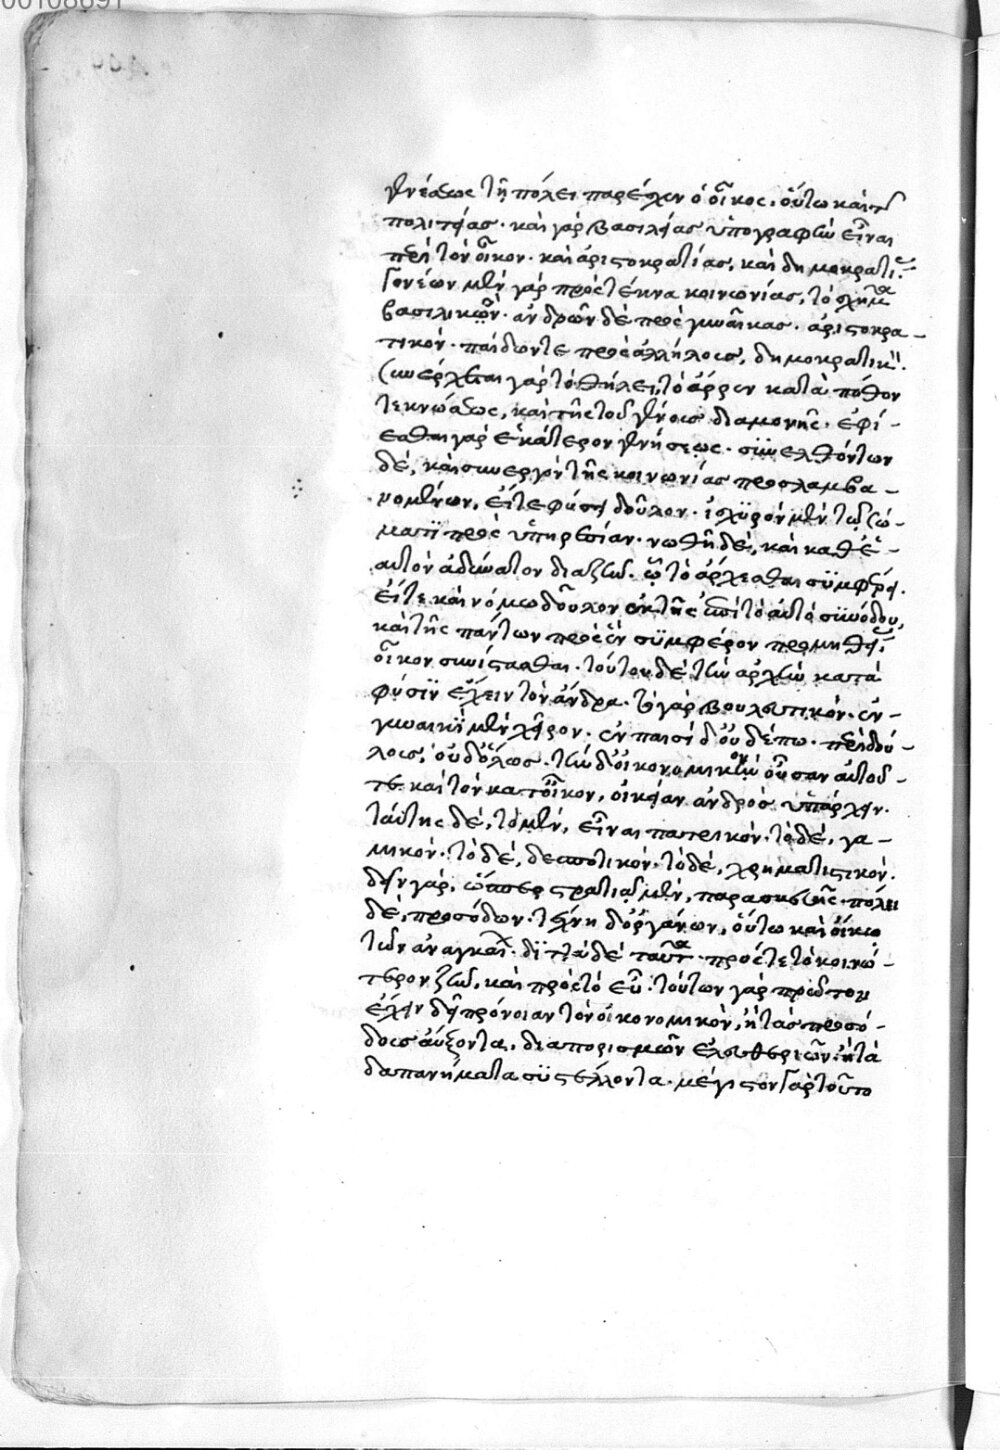 00108691
γενέσεως τῇ πόλει παρέχειν ὁ οἶκος· οὕτω καὶ τ
πολιτείας· καὶ γὰρ βασιλείας ὑπογραφὴν εἶναι
περὶ τὸν οἶκον· καὶ ἀριστοκρατίας, καὶ δημοκρατί
Γονέων μὲν γὰρ πρὸς τέκνα κοινωνίας, τὸ σχῆμα
βασιλικῶν· ἀνδρῶν δὲ πρὸς γυναῖκας· ἀριστοκρα-
τικόν· παίδων τε πρὸς ἀλλήλους, δημοκρατικόν.
Συνέρχεται γὰρ τὸ θήλει, τὸ ἄρρεν κατὰ πόθον
τεκνώσεως, καὶ τῆς τοῦ γένους διαμονῆς· ἐφί-
εσθαι γὰρ ἑκάτερον γενήσεως· συνελθόντων
δὲ, καὶ συνεργὸν τῆς κοινωνίας προσλαμβα-
νομένων, εἴτε φύσει δοῦλον· ἰσχυρὸν μὲν τῷ σώ-
ματι πρὸς ὑπηρεσίαν· νωθῆ δὲ, καὶ καθ' ἑ-
αυτὸν ἀδύνατον διαζῆν· ᾧ τὸ ἄρχεσθαι συμφέρει.
εἴτε καὶ νόμω δοῦλον ἐκ τῆς ἐπὶ τὸ αὐτὸ συνόδου,
καὶ τῆς πάντων πρὸς ἓν συμφέρον προμηθεί
οἶκον συνίστασθαι· τούτου δὲ τὴν ἀρχὴν κατὰ
φύσιν ἔχειν τὸν ἄνδρα· τὸ γὰρ βουλευτικὸν· ἐν
γυναικὶ μὲν χεῖρον· ἐν παισὶ δ' οὐδέπω· περὶ δού-
λους, οὐδόλως· τὴν δ' οἰκονομικὴν οὖσαν αὐτοῦ
τε καὶ τὸν κατ' οἶκον, οἰκείαν ἀνδρὸς ὑπάρχειν.
ταύτης δὲ, τὸ μὲν, εἶναι πατρικόν· τὸ δὲ, γα-
μικόν· τὸ δὲ, δεσποτικόν· τὸ δὲ, χρηματιστικόν.
δεῖν γὰρ, ὥσπερ στρατιᾷ μὲν, παρασκευῆς· πόλει
δὲ, προσόδων· τέχνη δ' ὀργάνων, οὕτω καὶ οἴκῳ
τῶν ἀναγκαί· διττὰ δὲ ταῦτα· πρός τε τὸ κοινό-
τερον ζῆν, καὶ πρὸς τὸ εὖ· τούτων γὰρ πρῶτον
ἔχειν δεῖ πρόνοιαν τὸν οἰκονομικὸν, ἢ τὰς προσό-
δους αὔξοντα, διὰ πορισμῶν ἐλευθερίων· ἢ τὰ
δαπανήματα συστέλλοντα· μέγιστον Γὰρ τοῦτο